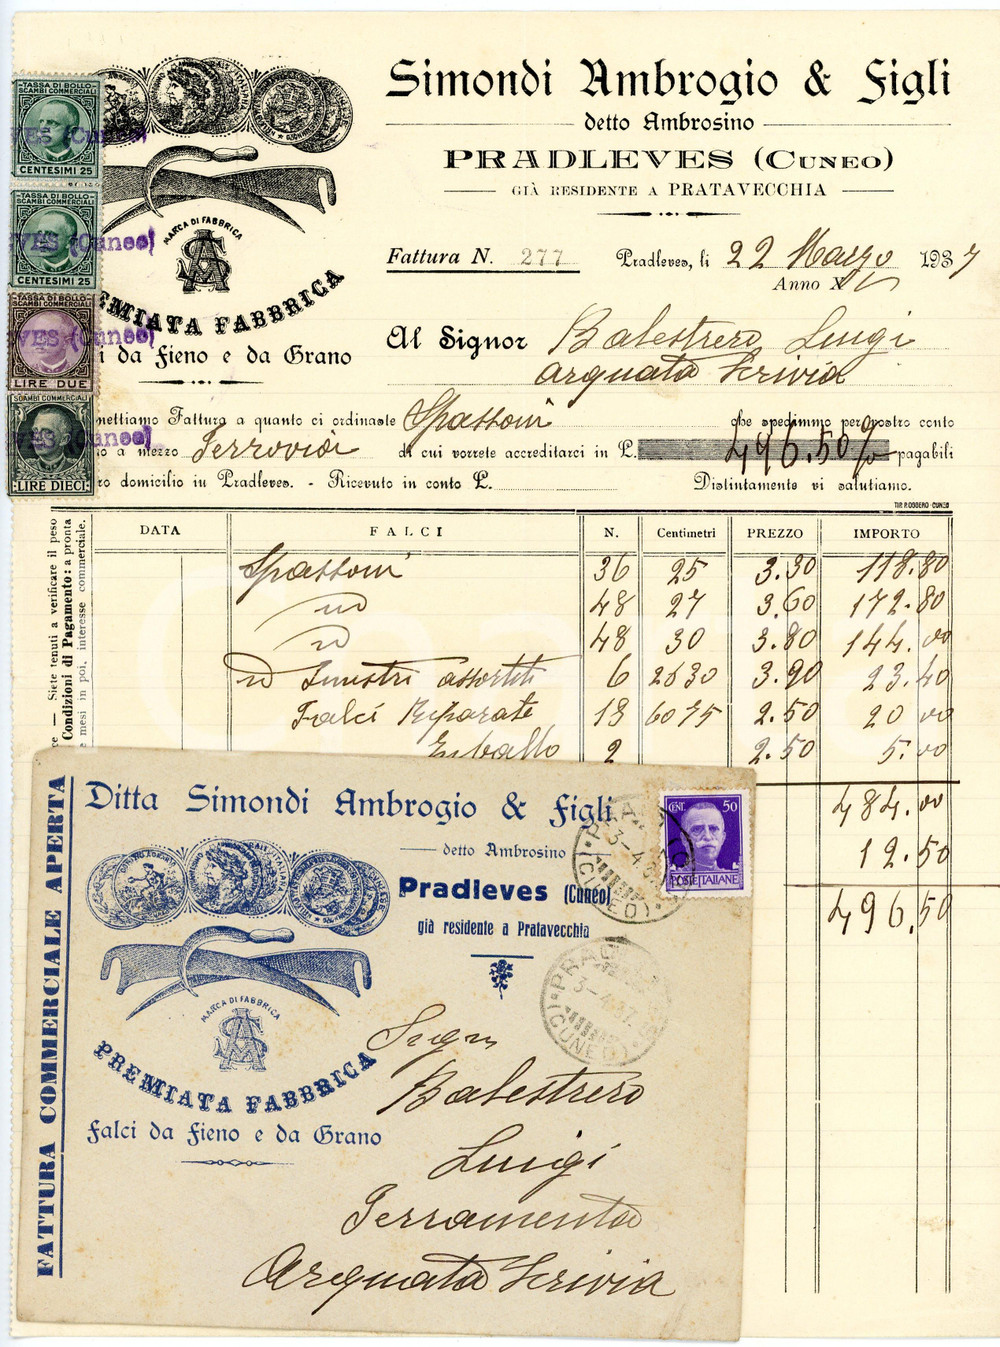 Simondi Ambrogio & Figli
detto Ambrosino
PRADLEVES (CUNEO)
GIÀ RESIDENTE A PRATAVECCHIA
TASSA DI BOLLO
SCAMBI COMMERCIALI
CENTESIMI 25
TASSA DI BOLLO
SCAMBI COMMERCIALI
CENTESIMI 25
TASSA DI BOLLO
SCAMBI COMMERCIALI
LIRE DUE
SCAMBI COMMERCIALI
LIRE DIECI
VES (Cuneo)
VES (Cuneo)
VES (Cuneo)
VES (Cuneo)
MARCA DI FABBRICA
EMIATA FABBRICA
i da Fieno e da Grano
Fattura N. 277
Pradleves, li 22 Marzo 1937
Anno XV
Al Signor Balestrero Luigi
Arquata Scrivia
mettiamo Fattura a quanto ci ordinaste Spassoni che spedimmo per vostro conto
o a mezzo Ferrovia di cui vorrete accreditarci in L. 496.50 pagabili
ro domicilio in Pradleves. - Ricevuto in conto L. Distintamente vi salutiamo.
TIP. P. OGGERO - CUNEO
DATA FALCI N. Centimetri PREZZO IMPORTO
Spassoni 36 25 3.30 118.80
" 48 27 3.60 172.80
" 48 30 3.80 144.00
" Sinistri assortiti 6 2630 3.90 23.40
Falci Riparate 13 6075 2.50 20 00
Imballo 2 2.50 5.00
484.00
12.50
496.50
ce — Siete tenuti a verificare il peso
Condizioni di Pagamento: a pronta
e mesi in poi, interesse commerciale.
FATTURA COMMERCIALE APERTA
Ditta Simondi Ambrogio & Figli
detto Ambrosino
Pradleves (Cuneo)
già residente a Pratavecchia
MARCA DI FABBRICA
PREMIATA FABBRICA
Falci da Fieno e da Grano
CENT. 50
POSTE ITALIANE
PRADLEVES
3-4.37
(CUNEO)
Sign
Balestrero
Luigi
Ferramenta
Arquata Scrivia